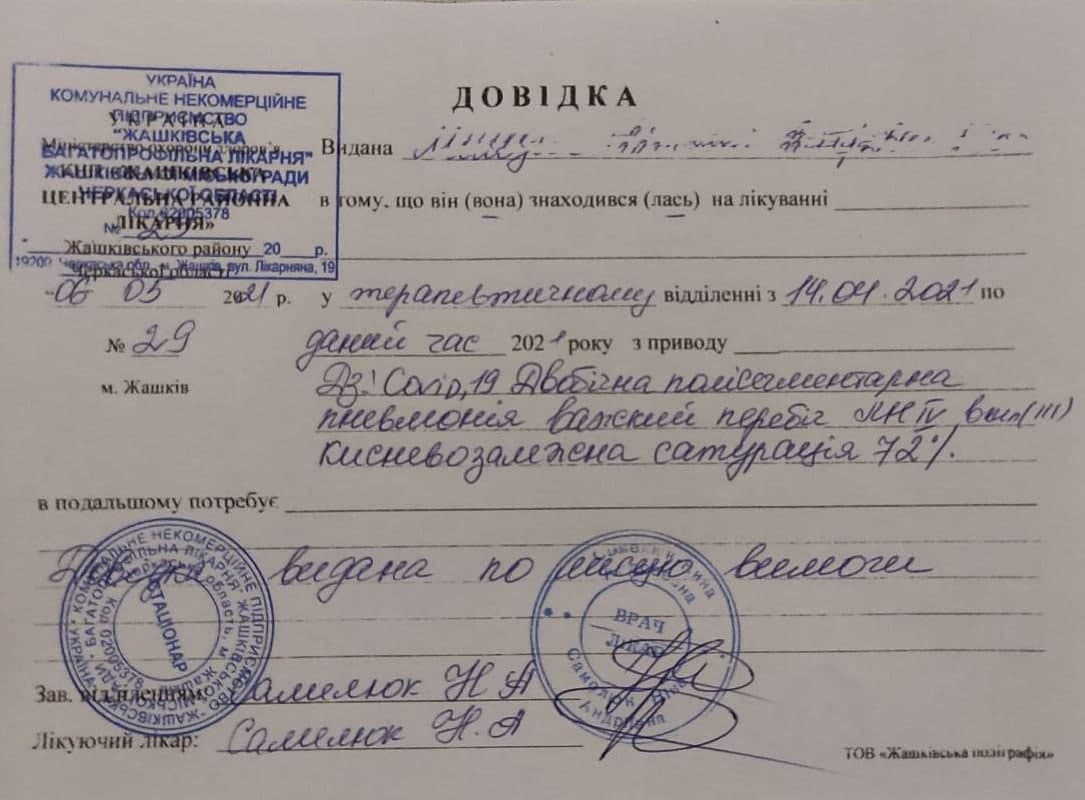 УКРАЇНА
КОМУНАЛЬНЕ НЕКОМЕРЦІЙНЕ
ПІДПРИЄМСТВО
"ЖАШКІВСЬКА
БАГАТОПРОФІЛЬНА ЛІКАРНЯ"
ЖАШКІВСЬКОЇ МІСЬКОЇ РАДИ
ЧЕРКАСЬКОЇ ОБЛАСТІ
Код 02005378
№ 29
20 р.
19200, Черкаська обл., м. Жашків, вул. Лікарняна, 19
УКРАЇНА
Міністерство охорони здоров'я
КНП «ЖАШКІВСЬКА
ЦЕНТРАЛЬНА РАЙОННА
ЛІКАРНЯ»
Жашківського району
Черкаської області
"06 05 2021 р.
№ 29
м. Жашків
ДОВІДКА
Видана
в тому, що він (вона) знаходився (лась) на лікуванні
у терапевтичному відділенні з 14.04.2021 по
даний час 2021 року з приводу
Дз: Covid, 19 Двобічна полісегментарна
пневмонія важкий перебіг ЛН IV
киснево сатурація 72%.
в подальшому потребує
видана по місцю вимоги
Зав. відділенням: Самилюк Н А
Лікуючий лікар: Самилюк Н.А
СТАЦІОНАР
КОМУНАЛЬНЕ НЕКОМЕРЦІЙНЕ ПІДПРИЄМСТВО
Код 02005378
ВРАЧ
ЛІКАР
Андріївна
ТОВ «Жашківська поліграфія»